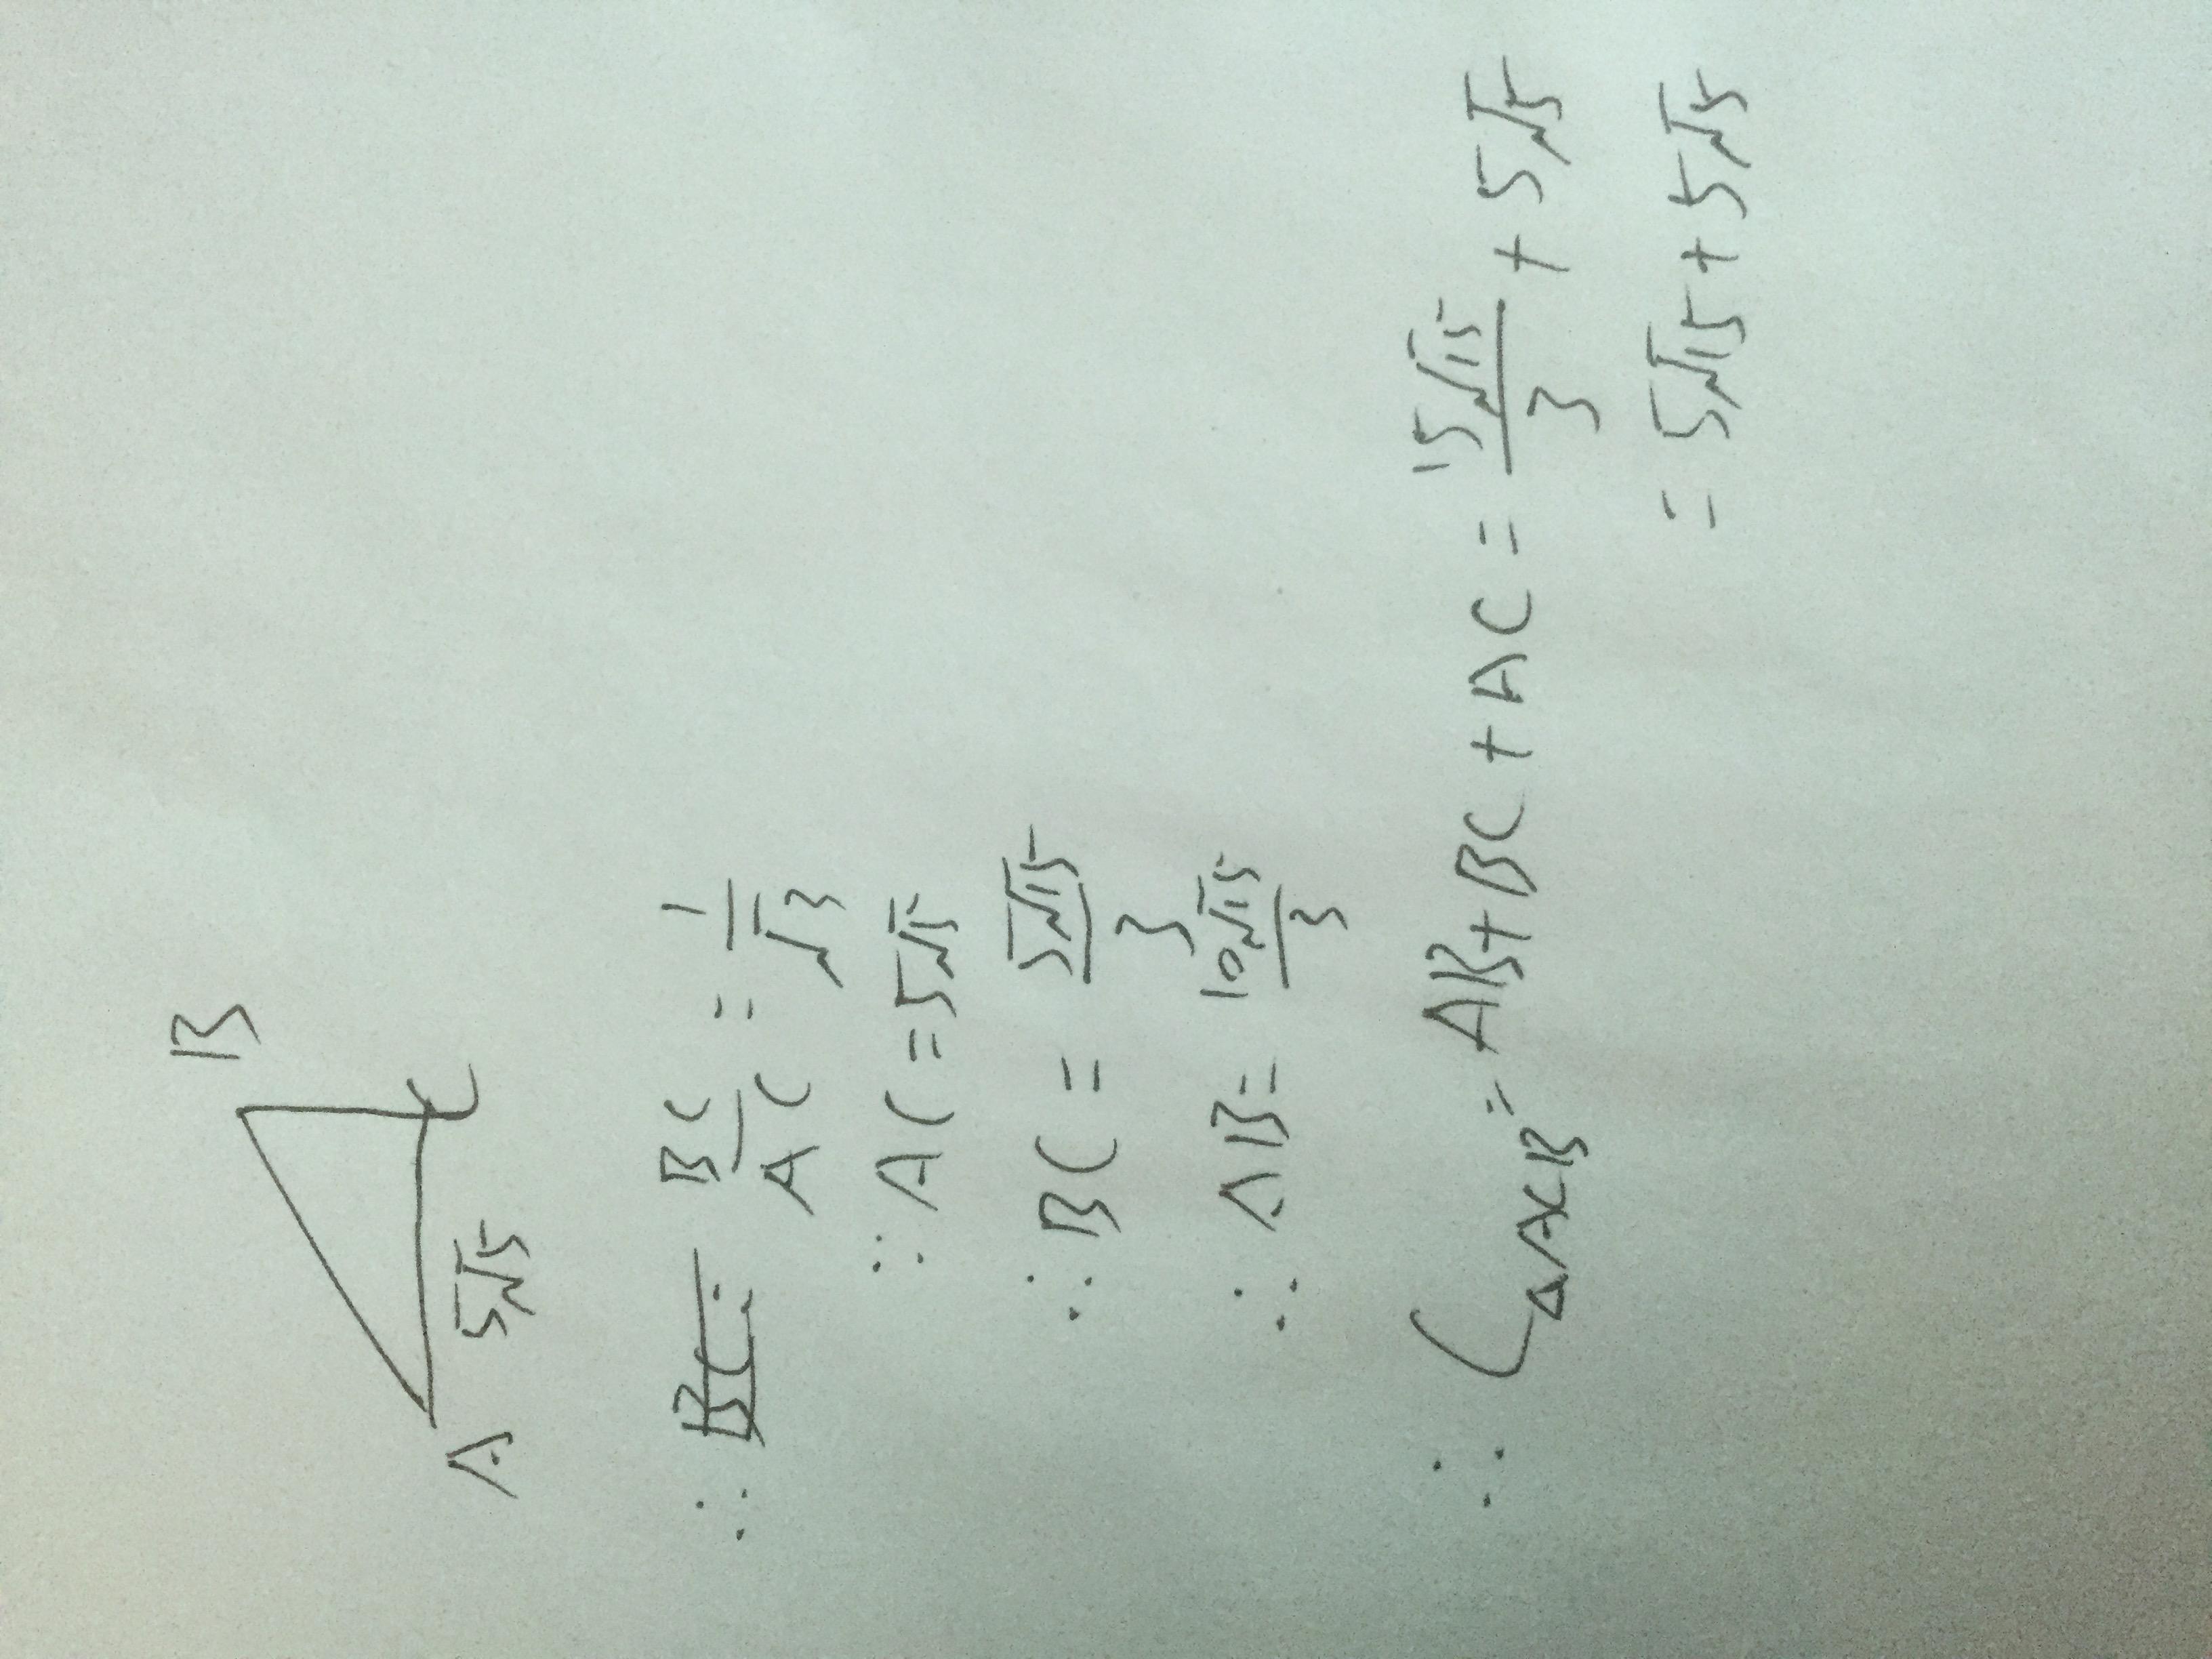 B
A 5√5 C
∴ BC: BC/AC = 1/√3
∵ AC = 5√5
∴ BC = 5√15/3
∴ AB = 10√15/3
∴ C△ACB = AB + BC + AC = 15√15/3 + 5√5
= 5√15 + 5√5